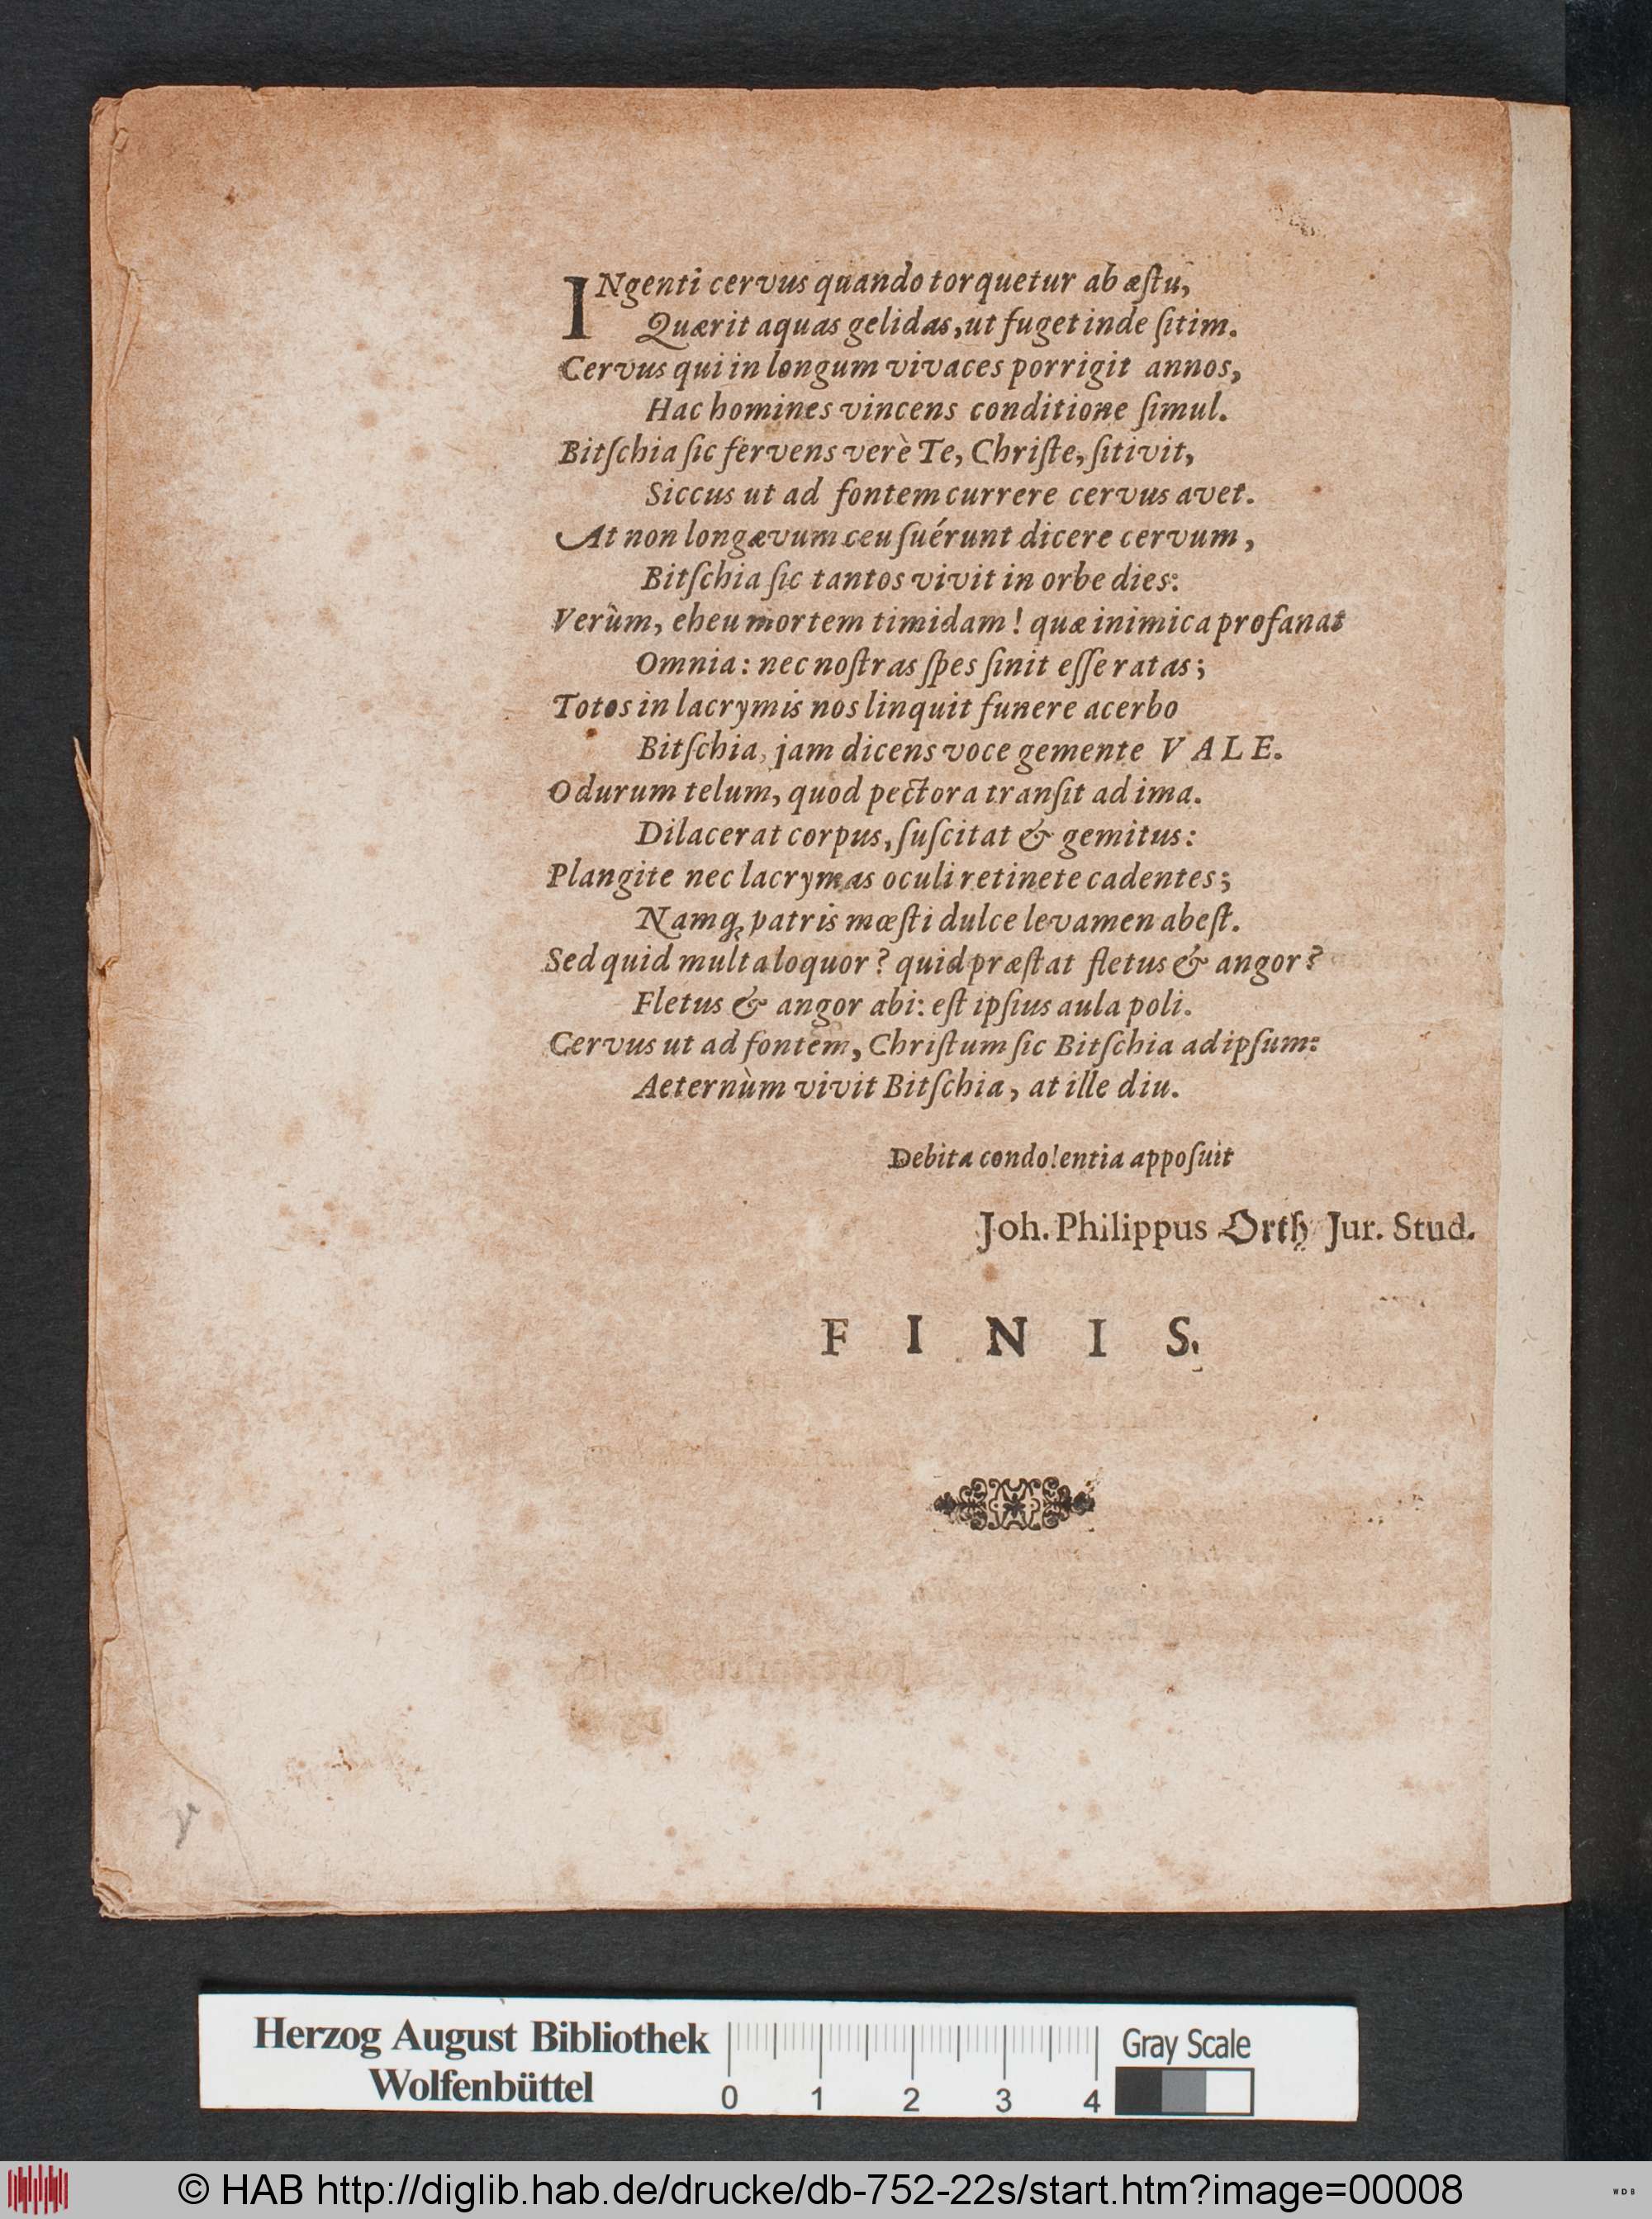 INgenti cervus quando torquetur ab æſtu,
Quærit aquas gelidas, ut fuget inde ſitim.
Cervus qui in longum vivaces porrigit annos,
Hac homines vincens conditione ſimul.
Bitſchia ſic fervens verè Te, Chriſte, ſitivit,
Siccus ut ad fontem currere cervus avet.
At non longævum ceu ſuérunt dicere cervum,
Bitſchia ſic tantos vivit in orbe dies:
Verùm, eheu mortem timidam! quæ inimica profanat
Omnia: nec noſtras ſpes ſinit eſſe ratas;
Totos in lacrymis nos linquit funere acerbo
Bitſchia, jam dicens voce gemente VALE.
O durum telum, quod pectora tranſit ad ima.
Dilacerat corpus, ſuſcitat & gemitus:
Plangite nec lacrymas oculi retinete cadentes;
Namq; patris mœſti dulce levamen abeſt.
Sed quid multa loquor? quid præſtat fletus & angor?
Fletus & angor abi: eſt ipſius aula poli.
Cervus ut ad fontem, Chriſtum ſic Bitſchia ad ipſum:
Aeternùm vivit Bitſchia, at ille diu.
Debita condolentia appoſuit
Joh. Philippus Orth Jur. Stud.
FINIS.
Herzog August Bibliothek
Wolfenbüttel
0 1 2 3 4
Gray Scale
© HAB http://diglib.hab.de/drucke/db-752-22s/start.htm?image=00008
WDB